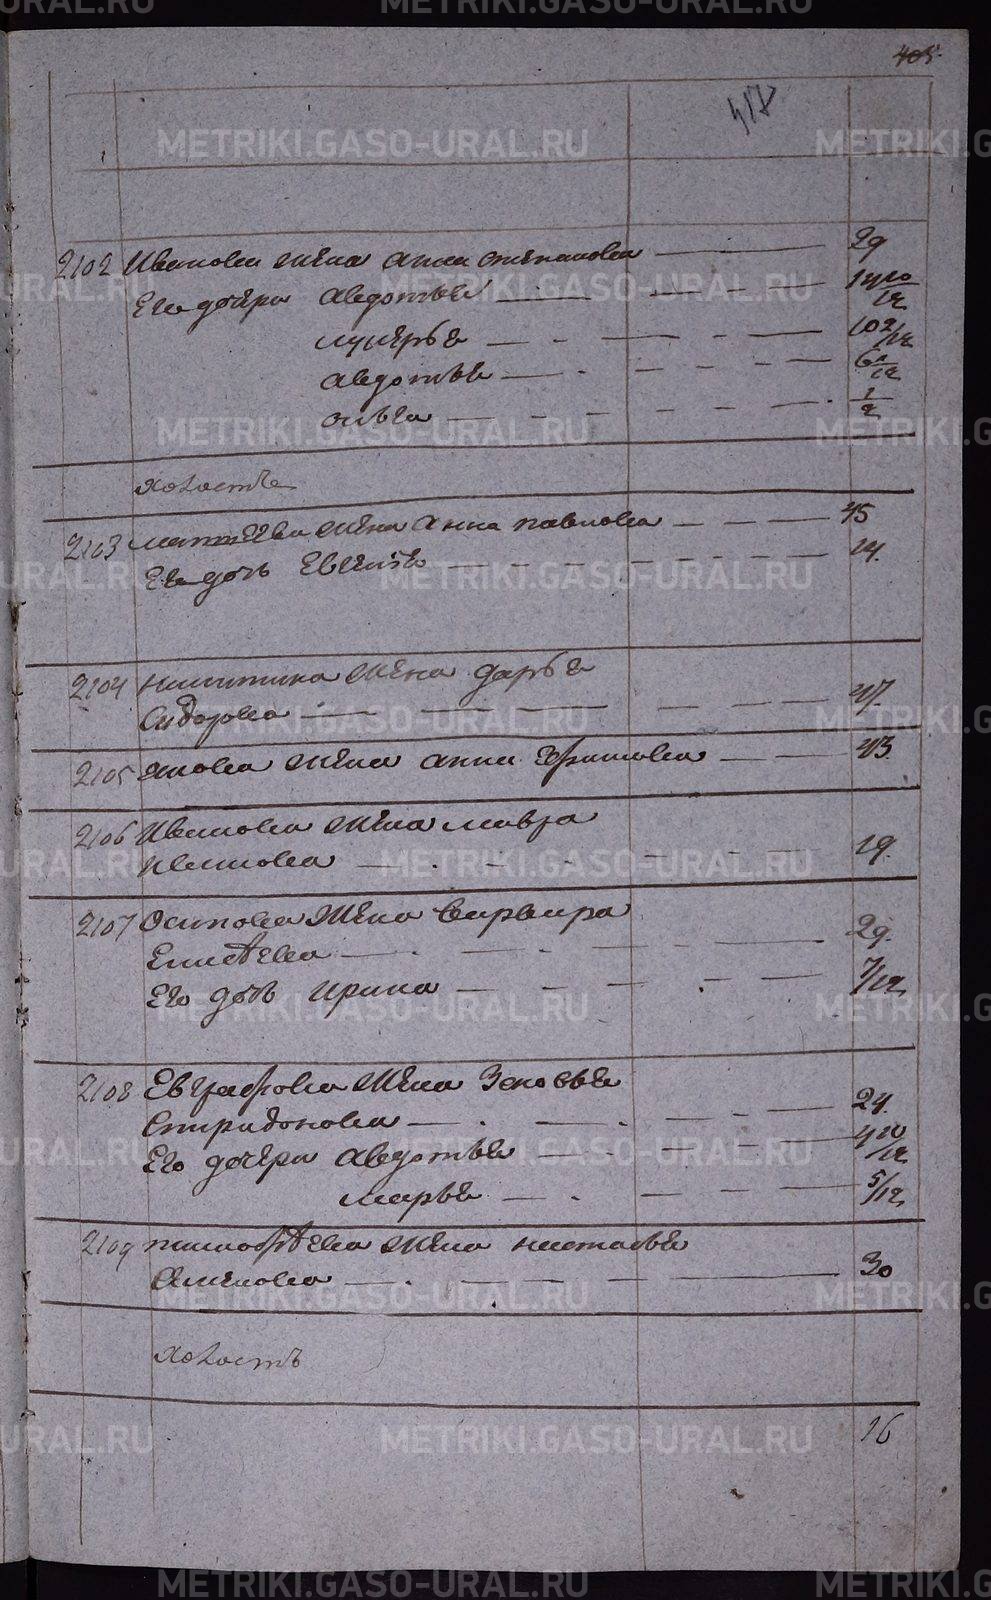 405
417
2102 Иванова жена Анна Степанова — 29
Его дочери Авдотья — 14 10/12
Лукерья — 10 2/12
Авдотья — 6
Ольга — 1/2
холостъ
2103 Матвева жена Анна Павлова — 45
Его дочь Евгенія — 14
2104 Никитина жена Дарья
Сидорова — 47
2105 жена Анна Ефимова — 43
2106 Иванова жена Мавра
Иванова — 19
2107 Осипова жена Варвара
29
Его дочь Ирина — 7/12
2108 Евграфова жена Зеновья
Спиридонова — 24
Его дочери Авдотья — 4 10/12
Марья — 5/12
2109 жена Настасья
Семенова — 30
холостъ
16
METRIKI.GASO-URAL.RU